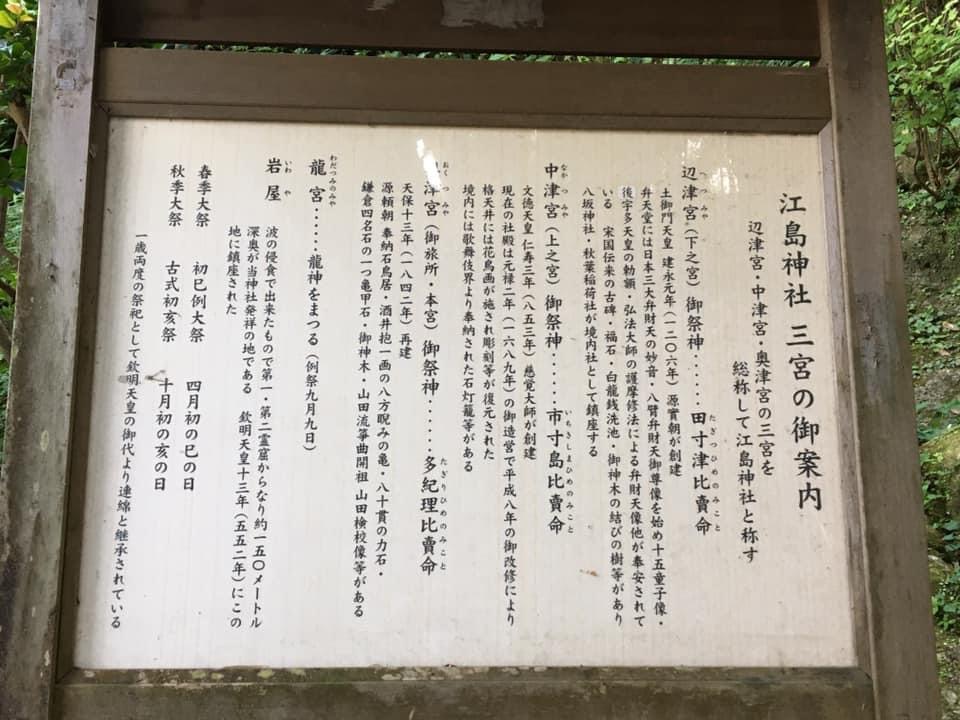 江島神社 三宮の御案内
辺津宮・中津宮・奥津宮の三宮を
総称して江島神社と称す
へつみや
辺津宮(下之宮)御祭神‥‥‥田寸津比賣命
たぎつひめのみこと
土御門天皇 建永元年(一二〇六年)源實朝が創建
弁天堂には日本三大弁財天の妙音・八臂弁財天御尊像を始め十五童子像・
後宇多天皇の勅額・弘法大師の護摩修法による弁財天像他が奉安されて
いる 宋国伝来の古碑・福石・白龍銭洗池・御神木の結びの樹等があり
八坂神社・秋葉稲荷社が境内社として鎮座する
なかつみや
中津宮(上之宮)御祭神‥‥‥市寸島比賣命
いちきしまひめのみこと
文徳天皇 仁寿三年(八五三年)慈覚大師が創建
現在の社殿は元禄二年(一六八九年)の御造営で平成八年の御改修により
格天井には花鳥画が施され彫刻等が復元された
境内には歌舞伎界より奉納された石灯籠等がある
おくつみや
津宮(御旅所・本宮)御祭神‥‥‥多紀理比賣命
たぎりひめのみこと
天保十三年(一八四二年)再建
源頼朝 奉納石鳥居・酒井抱一画の八方睨みの亀・八十貫の力石・
鎌倉四名石の一つ亀甲石・御神木・山田流箏曲開祖 山田検校像等がある
わだつみのみや
龍宮‥‥‥龍神をまつる(例祭九月九日)
いわや
岩屋
波の侵食で出来たもので第一・第二霊窟からなり約一五〇メートル
深奥が当神社発祥の地である 欽明天皇十三年(五五二年)にこの
地に鎮座された
春季大祭 初巳例大祭 四月初の巳の日
秋季大祭 古式初亥祭 十月初の亥の日
一歳両度の祭祀として欽明天皇の御代より連綿と継承されている